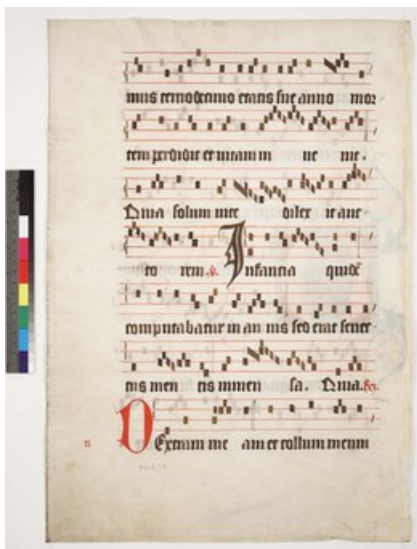 mus terciodecimo etatis sue anno mor
tem perdidit et vitam in ve nit.
Quia solum vite dilex it auc
to rem. V. Infancia quidē
computabatur in an nis sed erat senec
tus men tis immen sa. Quia.
DExtram me am et collum meum